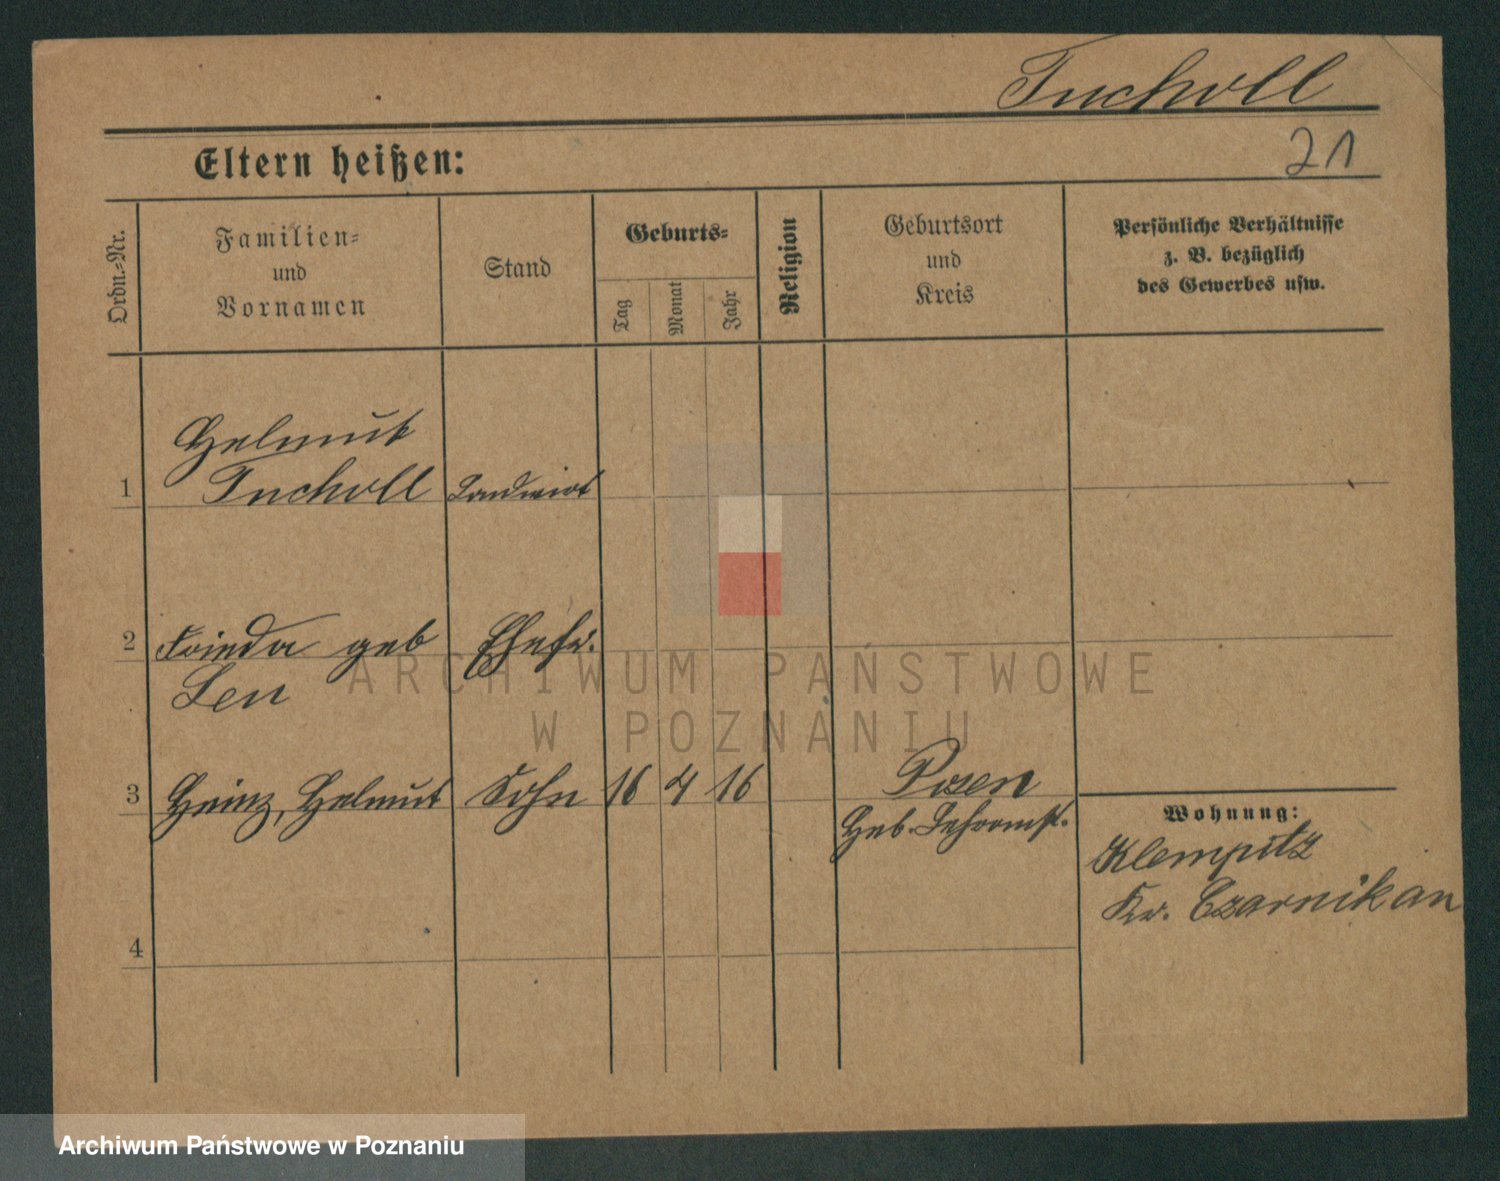 Tucholl
21
Eltern heißen:
Ordn.-Nr.
Familien-
und
Vornamen
Stand
Geburts-
Tag
Monat
Jahr
Religion
Geburtsort
und
Kreis
Persönliche Verhältnisse
z. B. bezüglich
des Gewerbes usw.
Helmut
1 Tucholl Landwirt
2 Frieda geb Ehefr.
Len
3 Heinz, Helmut Sohn 16 4 16 Posen
Heb. Lehranst.
Wohnung:
Klempitz
Kr. Czarnikau
4
ARCHIWUM PAŃSTWOWE
W POZNANIU
Archiwum Państwowe w Poznaniu